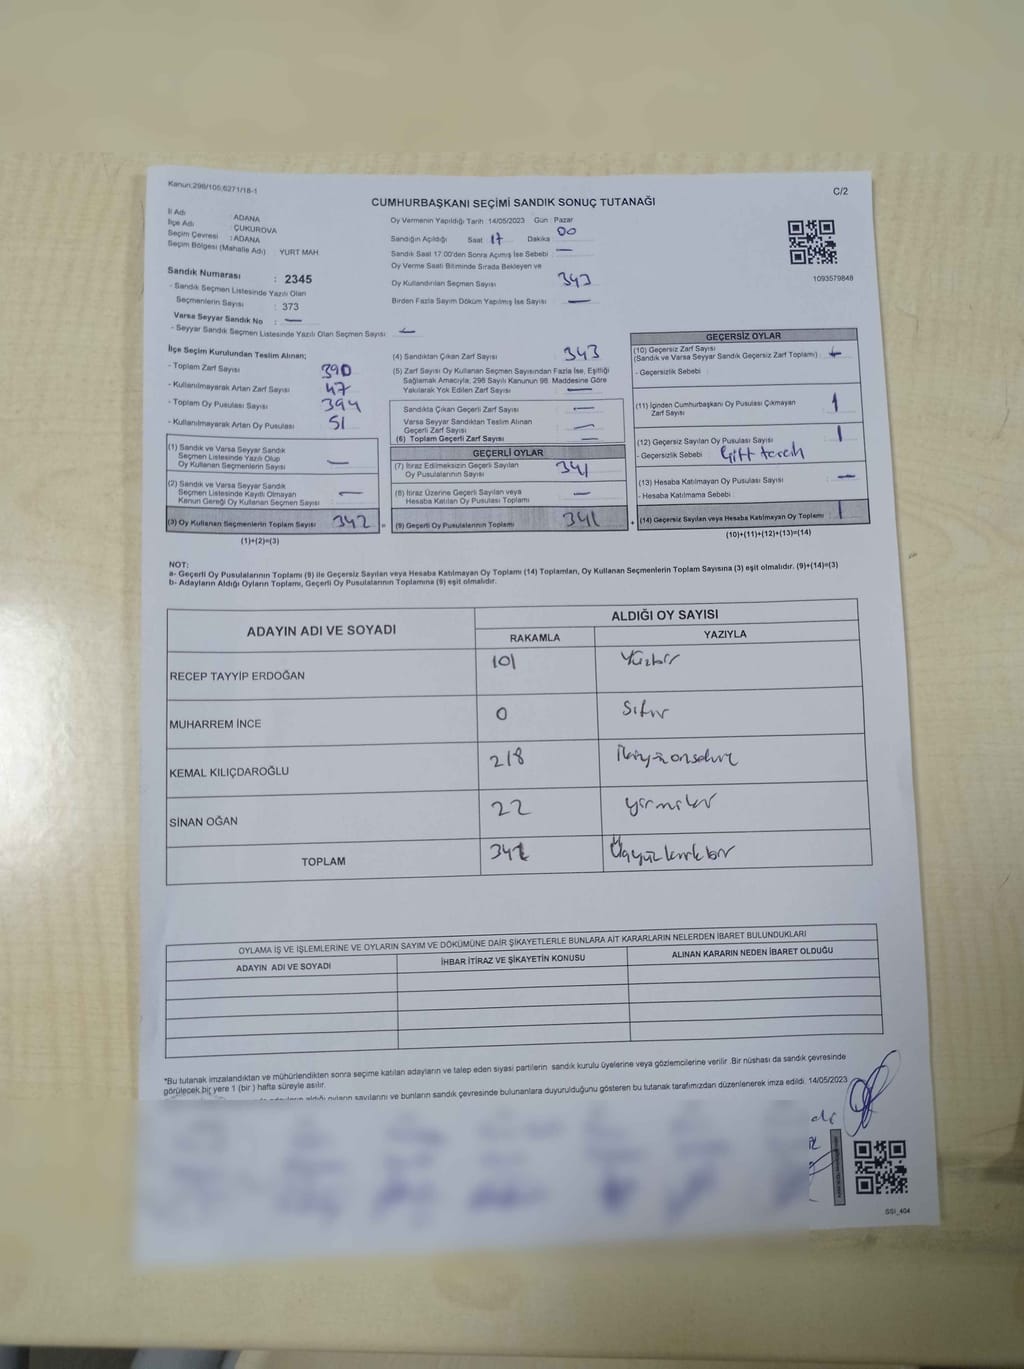 Kanun:298/105,6271/18-1
C/2
CUMHURBAŞKANI SEÇİMİ SANDIK SONUÇ TUTANAĞI
İl Adı : ADANA
İlçe Adı : ÇUKUROVA
Seçim Çevresi : ADANA
Seçim Bölgesi (Mahalle Adı) : YURT MAH
Sandık Numarası : 2345
- Sandık Seçmen Listesinde Yazılı Olan
Seçmenlerin Sayısı : 373
Varsa Seyyar Sandık No : —
- Seyyar Sandık Seçmen Listesinde Yazılı Olan Seçmen Sayısı : —
Oy Vermenin Yapıldığı Tarih :14/05/2023 Gün : Pazar
Sandığın Açıldığı Saat : 17 Dakika : 00
Sandık Saat 17:00'den Sonra Açılmış İse Sebebi : —
Oy Verme Saati Bitiminde Sırada Bekleyen ve
Oy Kullandırılan Seçmen Sayısı : 343
Birden Fazla Sayım Döküm Yapılmış İse Sayısı : —
1093579848
İlçe Seçim Kurulundan Teslim Alınan;
- Toplam Zarf Sayısı : 390
- Kullanılmayarak Artan Zarf Sayısı : 47
- Toplam Oy Pusulası Sayısı : 394
- Kullanılmayarak Artan Oy Pusulası : 51
(1) Sandık ve Varsa Seyyar Sandık
Seçmen Listesinde Yazılı Olup
Oy Kullanan Seçmenlerin Sayısı : —
(2) Sandık ve Varsa Seyyar Sandık
Seçmen Listesinde Kayıtlı Olmayan
Kanun Gereği Oy Kullanan Seçmen Sayısı : —
(3) Oy Kullanan Seçmenlerin Toplam Sayısı : 342 =
(1)+(2)=(3)
(4) Sandıktan Çıkan Zarf Sayısı : 343
(5) Zarf Sayısı Oy Kullanan Seçmen Sayısından Fazla İse, Eşitliği
Sağlamak Amacıyla; 298 Sayılı Kanunun 98. Maddesine Göre
Yakılarak Yok Edilen Zarf Sayısı : —
Sandıkta Çıkan Geçerli Zarf Sayısı : —
Varsa Seyyar Sandıktan Teslim Alınan
Geçerli Zarf Sayısı : —
(6) Toplam Geçerli Zarf Sayısı : —
GEÇERLİ OYLAR
(7) İtiraz Edilmeksizin Geçerli Sayılan
Oy Pusulalarının Sayısı : 341
(8) İtiraz Üzerine Geçerli Sayılan veya
Hesaba Katılan Oy Pusulası Toplamı : —
(9) Geçerli Oy Pusulalarının Toplamı : 341 +
GEÇERSİZ OYLAR
(10) Geçersiz Zarf Sayısı
(Sandık ve Varsa Seyyar Sandık Geçersiz Zarf Toplamı) : —
- Geçersizlik Sebebi :
(11) İçinden Cumhurbaşkanı Oy Pusulası Çıkmayan
Zarf Sayısı : 1
(12) Geçersiz Sayılan Oy Pusulası Sayısı : 1
- Geçersizlik Sebebi : Çift tercih
(13) Hesaba Katılmayan Oy Pusulası Sayısı : —
- Hesaba Katılmama Sebebi :
(14) Geçersiz Sayılan veya Hesaba Katılmayan Oy Toplamı : 1
(10)+(11)+(12)+(13)=(14)
NOT:
a- Geçerli Oy Pusulalarının Toplamı (9) ile Geçersiz Sayılan veya Hesaba Katılmayan Oy Toplamı (14) Toplamları, Oy Kullanan Seçmenlerin Toplam Sayısına (3) eşit olmalıdır. (9)+(14)=(3)
b- Adayların Aldığı Oyların Toplamı, Geçerli Oy Pusulalarının Toplamına (9) eşit olmalıdır.
ADAYIN ADI VE SOYADI
ALDIĞI OY SAYISI
RAKAMLA YAZIYLA
RECEP TAYYİP ERDOĞAN 101 Yüzbir
MUHARREM İNCE 0 Sıfır
KEMAL KILIÇDAROĞLU 218 İkiyüzonsekiz
SİNAN OĞAN 22 yirmiiki
TOPLAM 341 Üçyüzkırkbir
OYLAMA İŞ VE İŞLEMLERİNE VE OYLARIN SAYIM VE DÖKÜMÜNE DAİR ŞİKAYETLERLE BUNLARA AİT KARARLARIN NELERDEN İBARET BULUNDUKLARI
ADAYIN ADI VE SOYADI İHBAR İTİRAZ VE ŞİKAYETİN KONUSU ALINAN KARARIN NEDEN İBARET OLDUĞU
*Bu tutanak imzalandıktan ve mühürlendikten sonra seçime katılan adayların ve talep eden siyasi partilerin sandık kurulu üyelerine veya gözlemcilerine verilir .Bir nüshası da sandık çevresinde
görülecek bir yere 1 (bir ) hafta süreyle asılır.
adayların aldığı oyların sayılarını ve bunların sandık çevresinde bulunanlara duyurulduğunu gösteren bu tutanak tarafımızdan düzenlenerek imza edildi. 14/05/2023
SSI_404